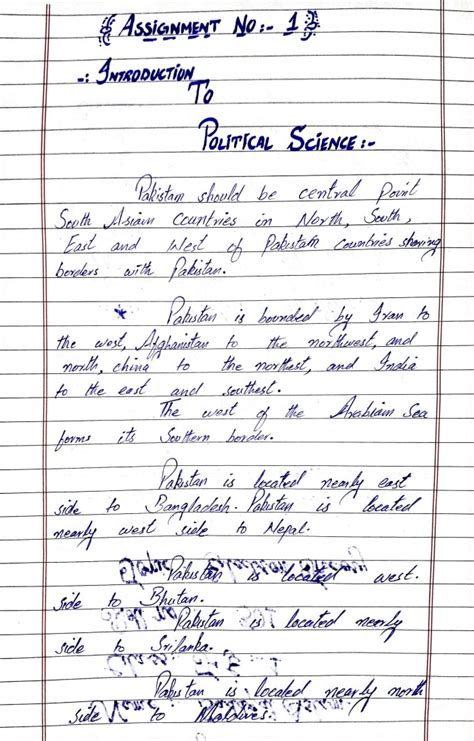 ASSIGNMENT NO:- 1
-: INTRODUCTION
TO
POLITICAL SCIENCE :-
Pakistan should be central point
South Asian countries in North, South,
East and West of Pakistan Countries sharing
borders with Pakistan.
* Pakistan is bounded by Iran to
the west, Afghanistan to the northwest, and
north, china to the northest, and India
to the east and southest.
The west of the Arabian Sea
forms its Southern border.
Pakistan is located nearly east
side to Bangladesh. Pakistan is located
nearly west side to Nepal.
Pakistan is located west.
side to Bhutan.
Pakistan is located nearly
side to Srilanka.
Pakistan is located nearly north
side to Maldives.